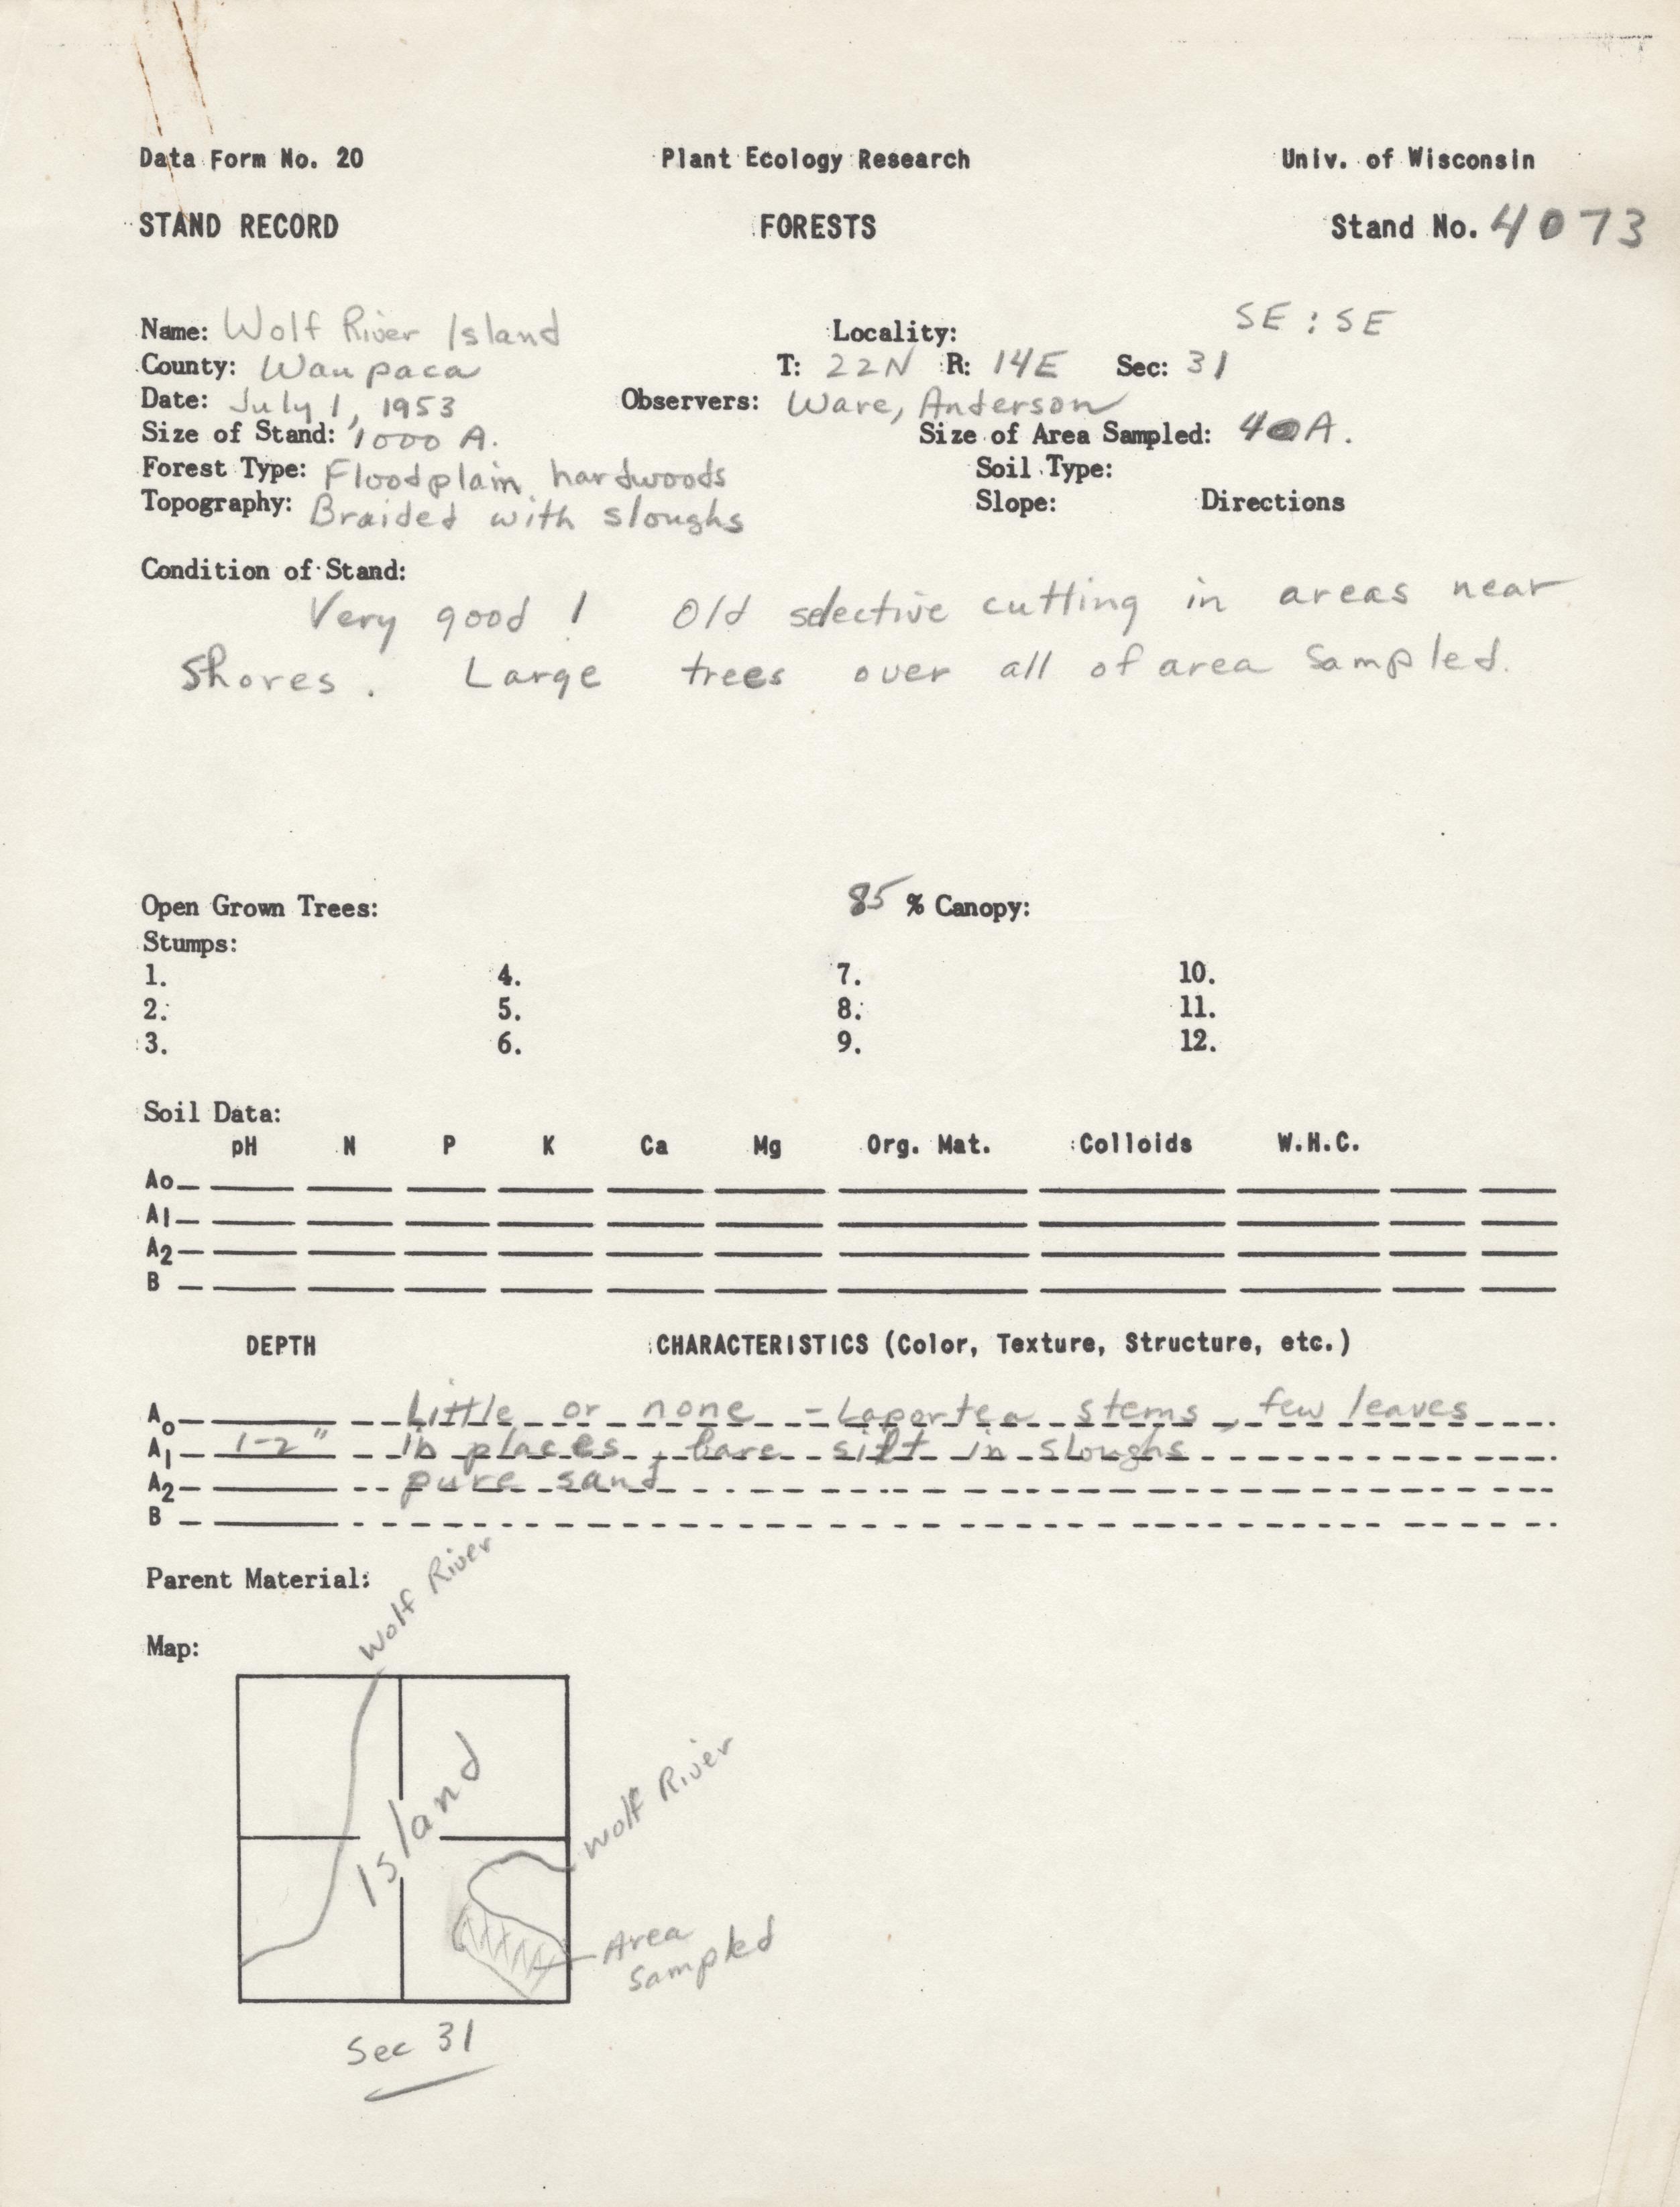 Data Form No. 20 Plant Ecology Research Univ. of Wisconsin
STAND RECORD FORESTS Stand No. 4073
SE : SE
Name: Wolf River Island Locality:
County: Waupaca T: 22N R: 14E Sec: 31
Date: July 1, 1953 Observers: Ware, Anderson
Size of Stand: 1000 A. Size of Area Sampled: 40A.
Forest Type: Floodplain hardwoods Soil Type:
Topography: Braided with sloughs Slope: Directions
Condition of Stand:
Very good ! Old selective cutting in areas near
Shores. Large trees over all of area Sampled.
Open Grown Trees: 85 % Canopy:
Stumps:
1. 4. 7. 10.
2. 5. 8. 11.
3. 6. 9. 12.
Soil Data:
pH N P K Ca Mg Org. Mat. Colloids W.H.C.
Ao
A1
A2
B
DEPTH CHARACTERISTICS (Color, Texture, Structure, etc.)
Ao Little or none - Laportea stems, few leaves
A1 1-2" in places, bare silt in sloughs
A2 pure sand
B
Wolf River
Parent Material:
Map:
Island
Wolf River
Area
Sampled
Sec 31